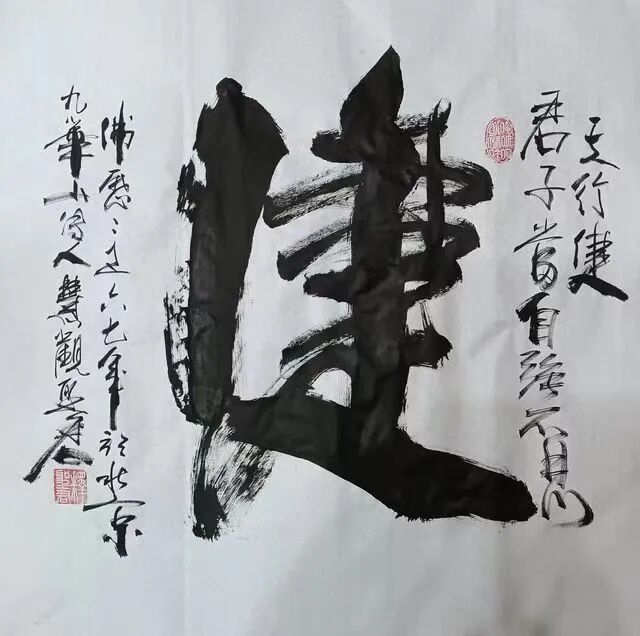 天行健
君子当自强不息
健
佛历二五六七年於北京
九华山传人慧观